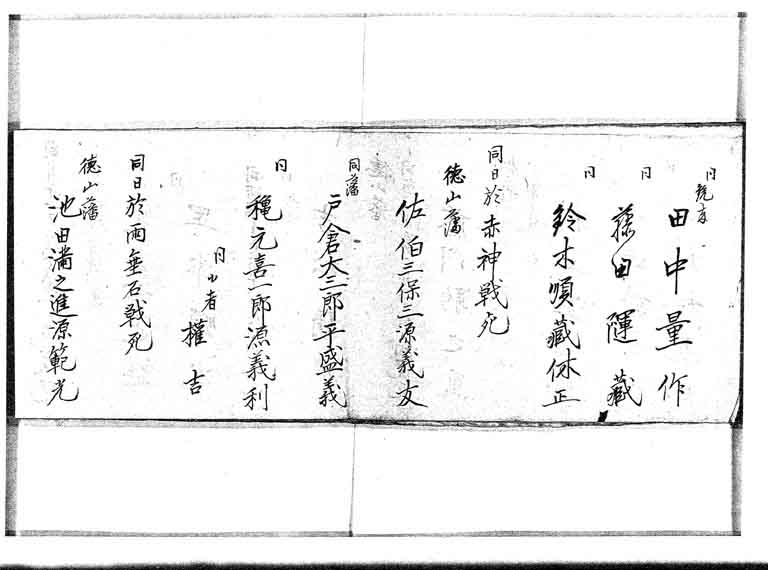 同
田中量作
同
藤田隆藏
同
鈴木順藏休正
同日於赤神戦死
徳山藩
佐伯三保三源義友
同藩
戸倉大三郎平盛義
同
穐元喜一郎源義利
同小者
權吉
同日於雨垂石戦死
徳山藩
池田満之進源範光